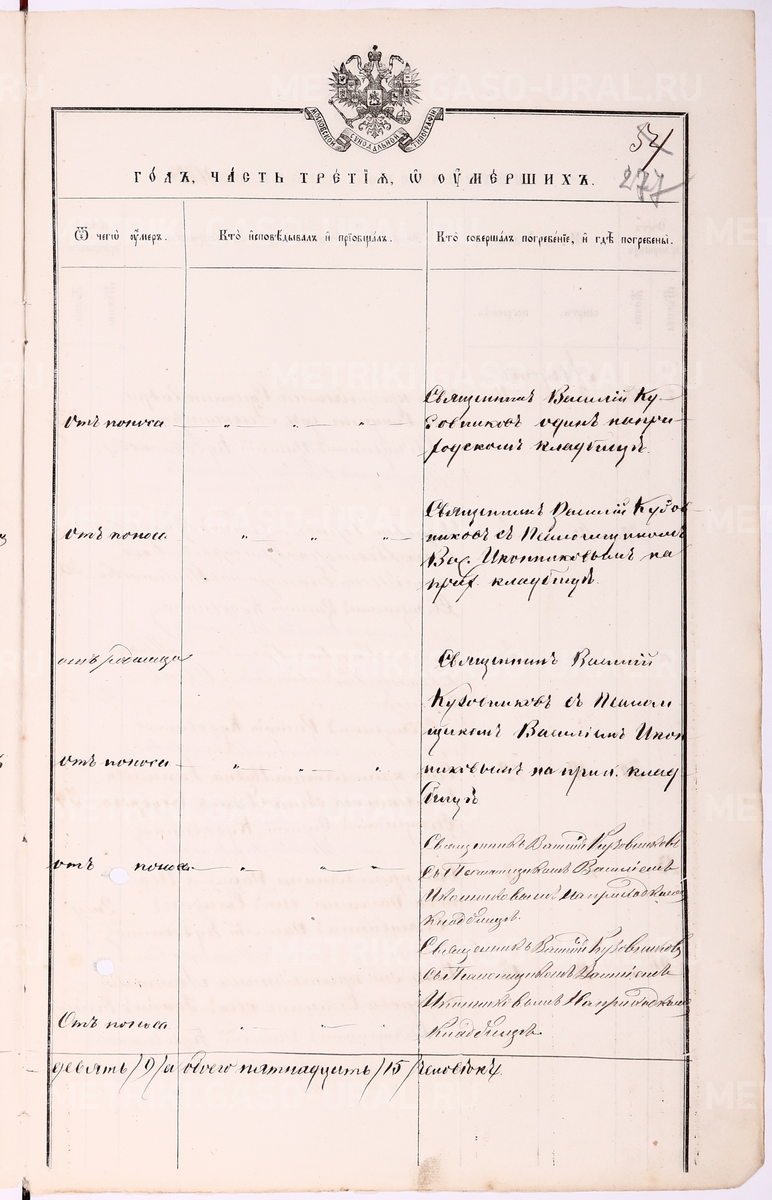 МОСКОВСКОЙ СѴНОДАЛЬНОЙ ТИПОГРАФІИ
54
277
ГО́ДЪ, ЧА́СТЬ ТРЕ́ТІѦ, Ѽ ОУ҆МЕ́РШИХЪ.
Ѿ чегѡ̀ оу҆́меръ.
Кто̀ и҆сповѣ́дывалъ и҆ прїобща́лъ.
Кто̀ соверша́лъ погребе́нїе, и҆ гдѣ̀ погребены̀.
отъ поноса " " "
Священникъ Василій Ку-
зовниковъ одинъ на при-
ходскомъ кладбищѣ.
отъ поноса " " "
Священникъ Василій Кузов
никовъ съ Псаломщикомъ
Вас. Иконниковымъ на
прих. кладбищѣ.
отъ родимца
Священникъ Василій
Кузовниковъ съ Псалом
щикомъ Василіемъ Икон
отъ поноса " " "
никовымъ на прих. клад
бищѣ
отъ поноса " " "
Священникъ Василій Кузовниковъ
съ Псаломщикомъ Василіемъ
Иконниковымъ На приходскомъ
Кладбищѣ.
Священникъ Василій Кузовниковъ
съ Псаломщикомъ Василіемъ
Иконниковымъ На приходскомъ
Отъ поноса " " "
Кладбищѣ.
девять /9/ а обоего пятнадцать /15/ человѣкъ.
METRIKI.GASO-URAL.RU